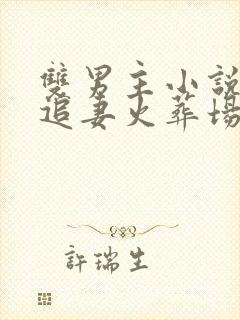 雙男主小說
追妻火葬場
許瑞生